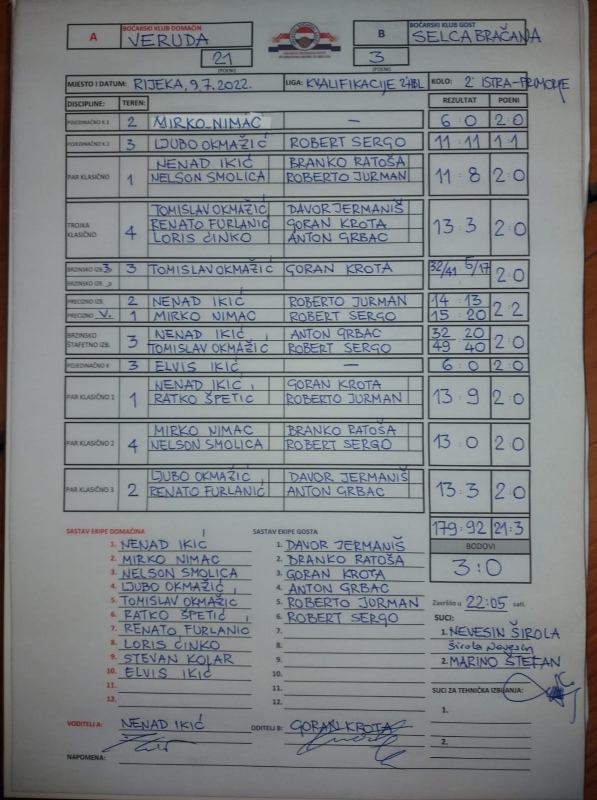 BOČARSKI KLUB DOMAĆIN
A VERUDA
21
(POENI)
BOČARSKI KLUB GOST
B SELCA BRAČANA
3
(POENI)
MJESTO I DATUM: RIJEKA, 9.7.2022. LIGA: KVALIFIKACIJE 2.HBL KOLO: 2 ISTRA-PRIMORJE
DISCIPLINE: TEREN: REZULTAT POENI
POJEDINAČNO K.1 2 MIRKO NIMAC — 6 : 0 2 : 0
POJEDINAČNO K.2 3 LJUBO OKMAŽIĆ ROBERT SERGO 11 : 11 1 : 1
NENAD IKIĆ BRANKO RATOŠA
PAR KLASIČNO 1 NELSON SMOLICA ROBERTO JURMAN 11 : 8 2 : 0
TOMISLAV OKMAŽIĆ DAVOR JERMANIŠ
TROJKA KLASIČNO 4 RENATO FURLANIĆ GORAN KROTA 13 : 3 2 : 0
LORIS ĆINKO ANTON GRBAC
BRZINSKO IZB. 3 3 TOMISLAV OKMAŽIĆ GORAN KROTA 32/41 5/17 2 : 0
BRZINSKO IZB.
PRECIZNO IZB. 2 NENAD IKIĆ ROBERTO JURMAN 14 : 13
PRECIZNO V. 1 MIRKO NIMAC ROBERT SERGO 15 : 20 2 : 2
BRZINSKO ŠTAFETNO IZB. 3 NENAD IKIĆ ANTON GRBAC 32 20 2 : 0
TOMISLAV OKMAŽIĆ ROBERT SERGO 49 40
POJEDINAČNO K 3 ELVIS IKIĆ — 6 : 0 2 : 0
NENAD IKIĆ GORAN KROTA
PAR KLASIČNO 1 1 RATKO ŠPETIĆ ROBERTO JURMAN 13 : 9 2 : 0
MIRKO NIMAC BRANKO RATOŠA
PAR KLASIČNO 2 4 NELSON SMOLICA ROBERT SERGO 13 : 0 2 : 0
LJUBO OKMAŽIĆ DAVOR JERMANIŠ
PAR KLASIČNO 3 2 RENATO FURLANIĆ ANTON GRBAC 13 : 3 2 : 0
179:92 21:3
BODOVI
3 : 0
SASTAV EKIPE DOMAĆINA
1. NENAD IKIĆ
2. MIRKO NIMAC
3. NELSON SMOLICA
4. LJUBO OKMAŽIĆ
5. TOMISLAV OKMAŽIĆ
6. RATKO ŠPETIĆ
7. RENATO FURLANIĆ
8. LORIS ĆINKO
9. STEVAN KOLAR
10. ELVIS IKIĆ
11.
12.
SASTAV EKIPE GOSTA
1. DAVOR JERMANIŠ
2. BRANKO RATOŠA
3. GORAN KROTA
4. ANTON GRBAC
5. ROBERTO JURMAN
6. ROBERT SERGO
7.
8.
9.
10.
11.
12.
Završio u 22:05 sati.
SUCI:
1. NEVESIN ŠIROLA
Širola Nevesin
2. MARINO ŠTEFAN
SUCI ZA TEHNIČKA IZBIJANJA:
1.
2.
VODITELJ A: NENAD IKIĆ
ODITELJ B: GORAN KROTA
NAPOMENA: